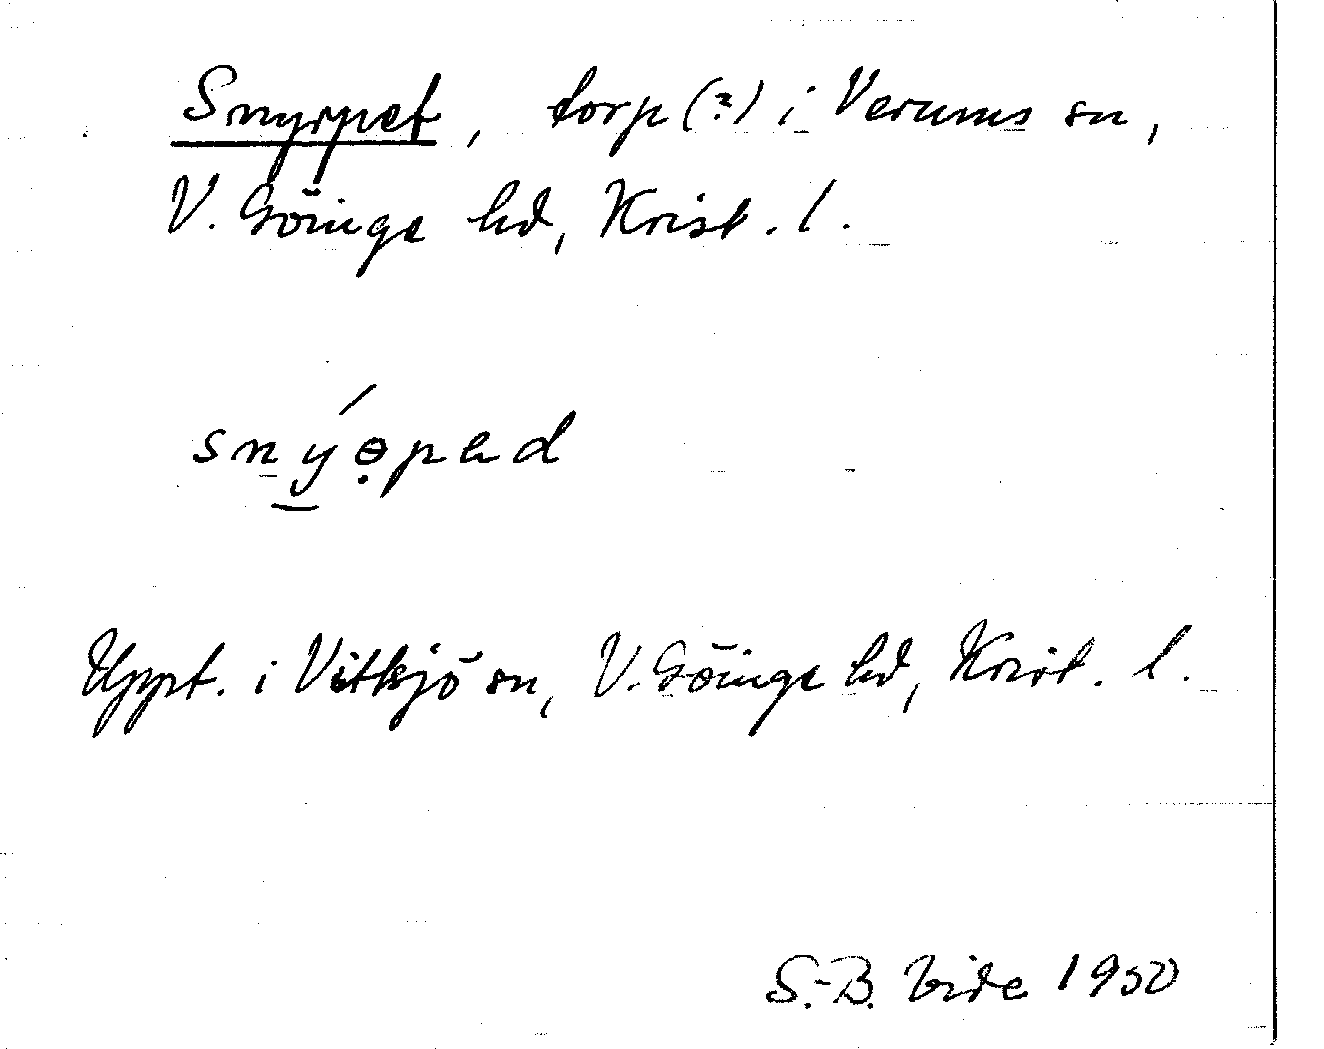 Snyrpet, torp (?) i Verums sn,
V. Göinge hd, Krist. l.
snýəpad
Uppt. i Vitsjö sn, V. Göinge hd, Krist. l.
S.-B. Vide 1950